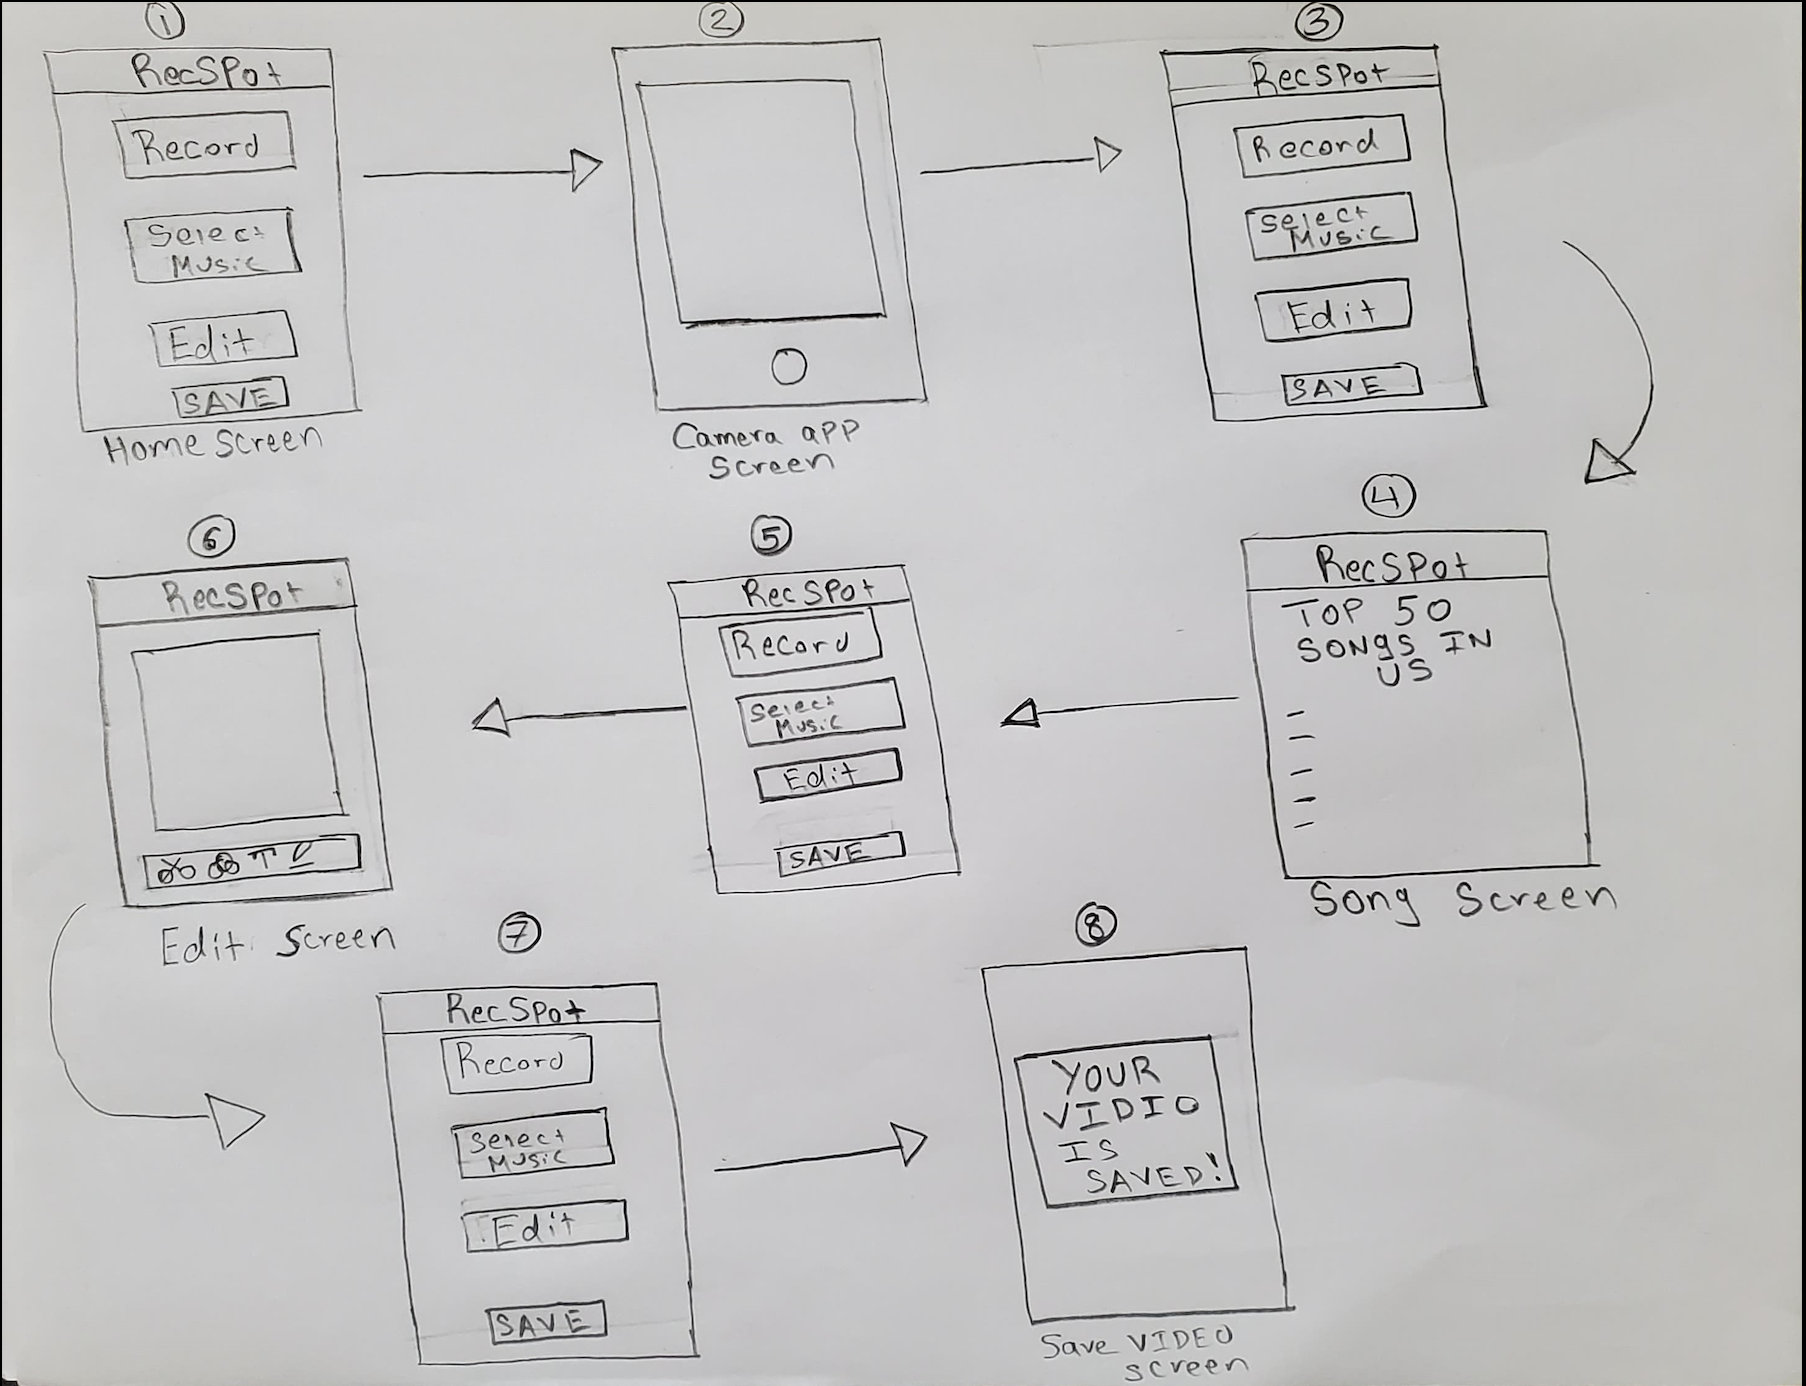 1
RecSPot
Record
Select
Music
Edit
SAVE
Home Screen
2
Camera app
Screen
3
RecSPot
Record
Select
Music
Edit
SAVE
4
RecSPot
TOP 50
SONgS IN
US
Song Screen
5
RecSPot
Record
Select
Music
Edit
SAVE
6
RecSPot
T
Edit Screen
7
RecSPot
Record
Select
Music
Edit
SAVE
8
YOUR
VIDIO
IS
SAVED!
Save VIDEO
screen